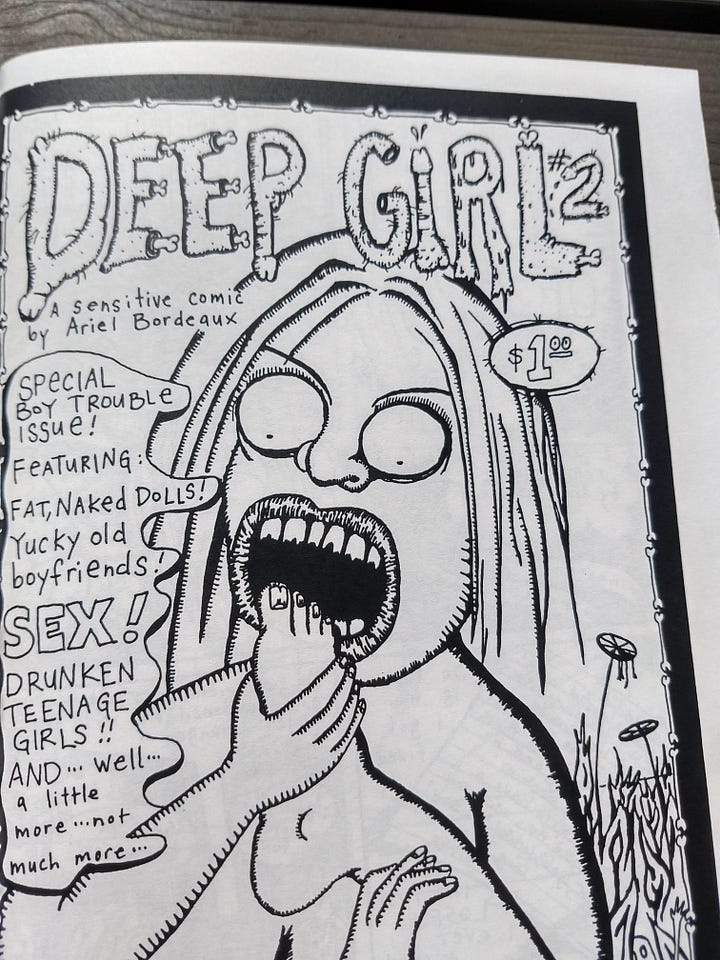 DEEP GIRL #2
A sensitive comic
by Ariel Bordeaux
$1.00
SPECIAL
BOY TROUBLE
ISSUe!
FEATURING:
FAT, NAKed DOLLS!
Yucky old
boyfriends!
SEX!
DRUNKEN
TEENAGE
GIRLS!!
AND... well...
a little
more...not
much more...